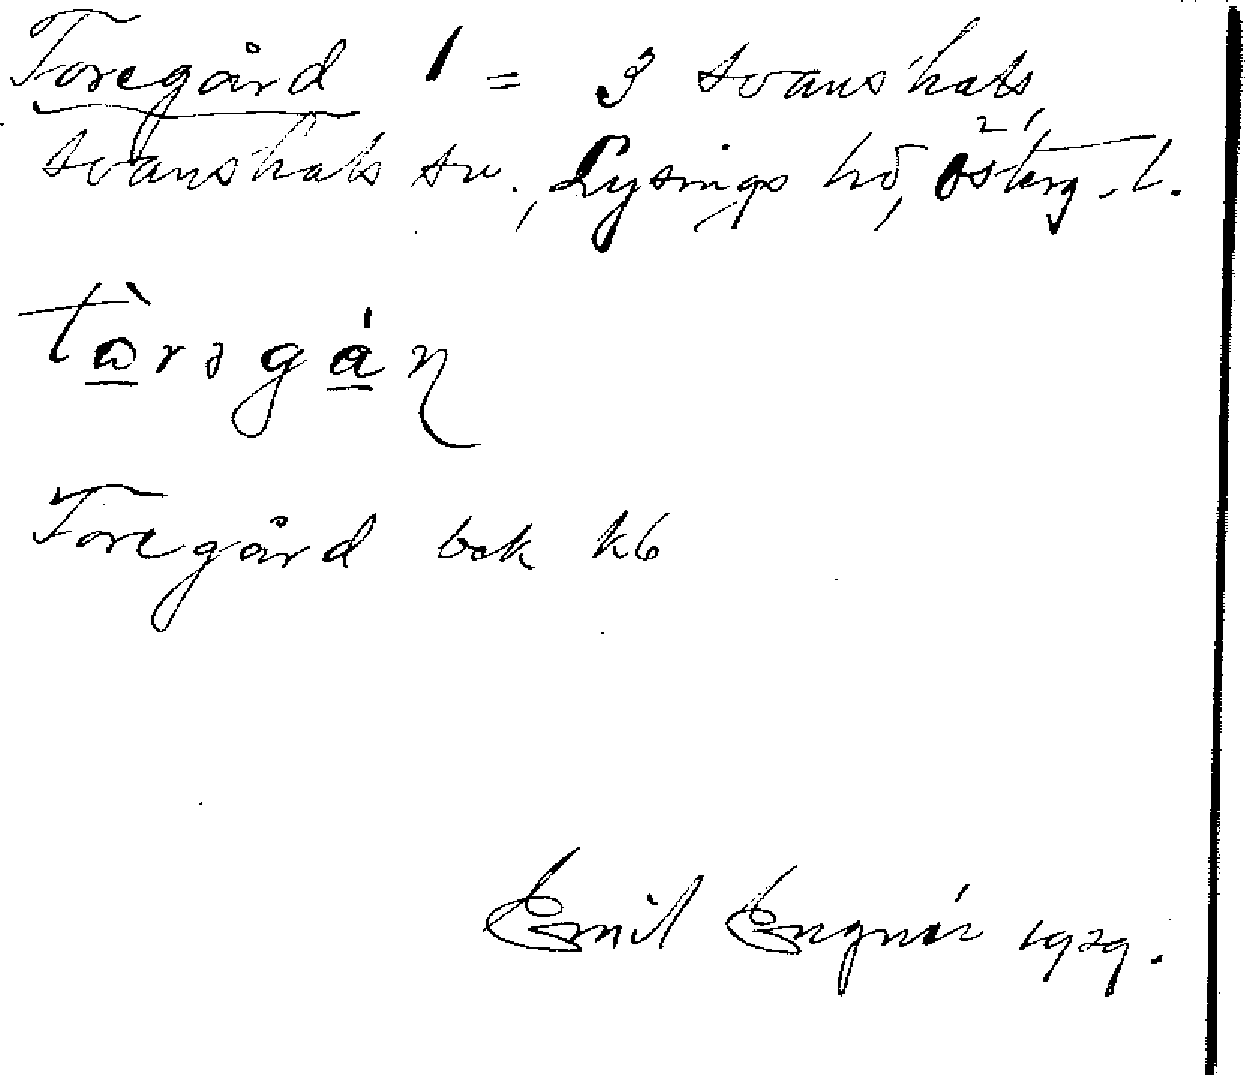 Toregård 1 = 3 Svanshals,
Svanshals sn., Lysings hd, Österg. l.
tòrəgán
Toregård bek kb
Emil Engnér 1929.